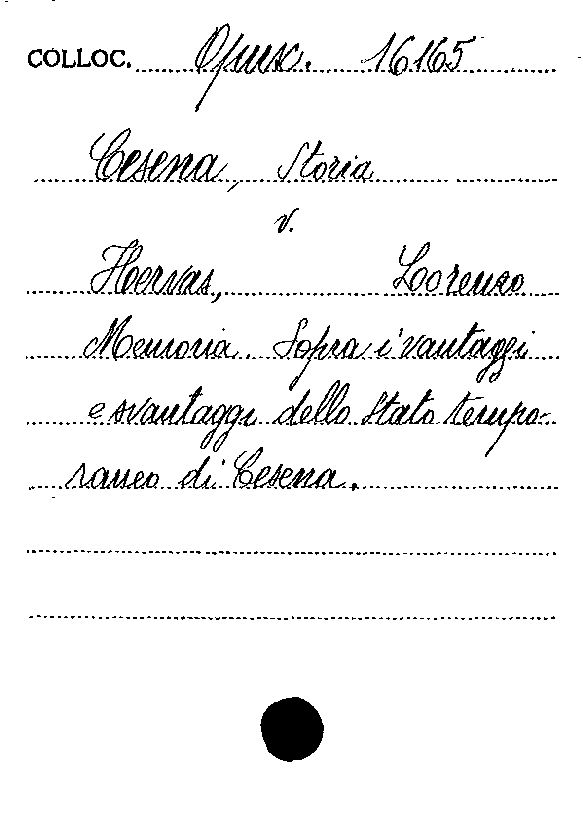 COLLOC. Opusc. 16165
Cesena, Storia
v.
Hervas, Lorenzo
Memoria. Sopra i vantaggi
e svantaggi dello Stato tempo-
raneo di Cesena.